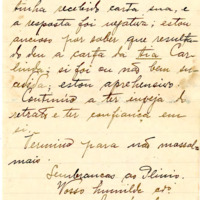 tinha recebido carta sua, e
a resposta foi negativa; estou
ancioso por saber que resulta-
do deu a carta da tia Car-
linda; si foi ou não bem suc-
cedida; estou aprehensivo
Continúo a ter inveja do
retrato e ter confiança em
si.
Termino para não massal-a
mais.
Lembranças ao Plinio.
Vosso humilde